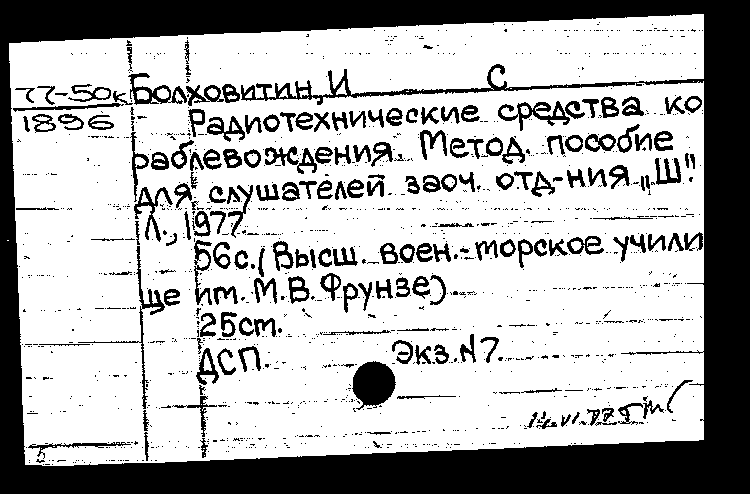 77-50к Болховитин, И С
1896 - Радиотехнические средства ко
раблевождения. Метод. пособие
для слушателей заоч. отд-ния „Ш".
Л., 1977.
56с. (Высш. воен.-морское учили
ще им. М.В. Фрунзе).
25ст.
ДСП. Экз.N7.
5